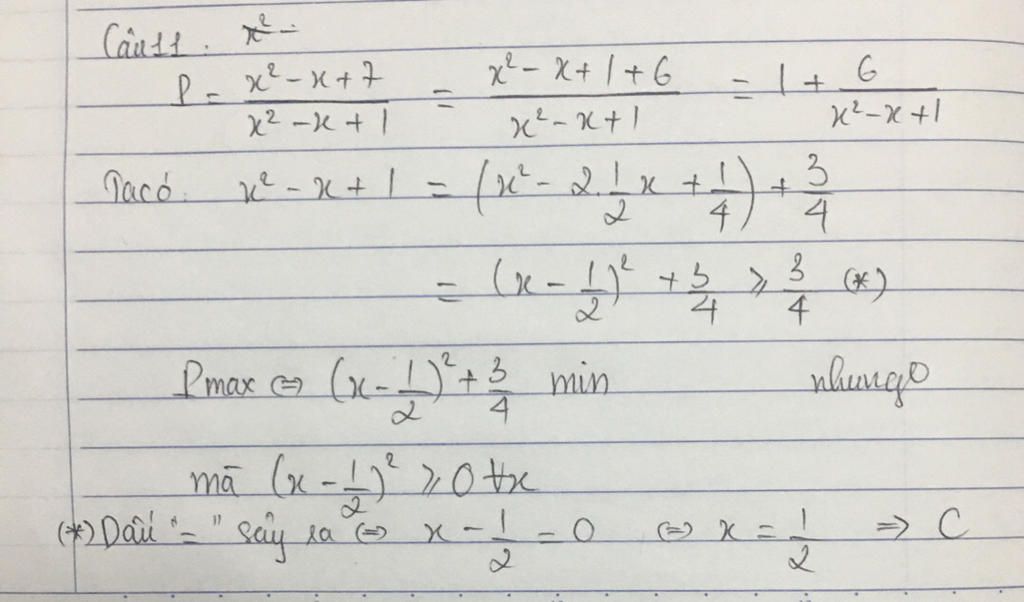 Câu 11. x² -
P = (x² - x + 7)/(x² - x + 1) = (x² - x + 1 + 6)/(x² - x + 1) = 1 + 6/(x² - x + 1)
Ta có: x² - x + 1 = (x² - 2.1/2x + 1/4) + 3/4
= (x - 1/2)² + 3/4 ⩾ 3/4 (*)
Pmax ⇔ (x - 1/2)² + 3/4 min nhungo
mà (x - 1/2)² ⩾ 0 ∀x
(*) Dấu "=" sảy ra ⇔ x - 1/2 = 0 ⇔ x = 1/2 ⇒ C